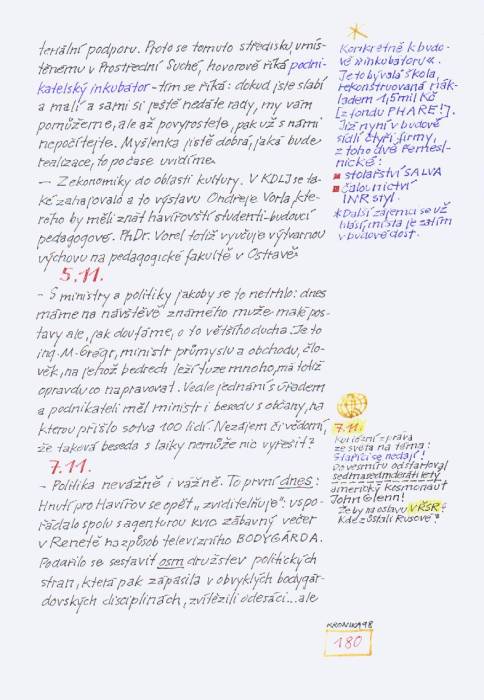 teriální podporu. Proto se tomuto středisku, umís-
těnému v Prostřední Suché, hovorově říká podni-
katelský inkubátor – tím se říká: dokud jste slabí
a malí a sami si ještě nedáte rady, my vám
pomůžeme, ale až povyrostete, pak už s námi
nepočítejte. Myšlenka jistě dobrá, jaká bude
realizace, to počase uvidíme.
– Z ekonomiky do oblasti kultury. V KDLJ se ta-
ké zahajovalo a to výstavu Ondřeje Vorla, kte-
rého by měli znát havířovští studenti-budoucí
pedagogové. PhDr. Vorel totiž vyučuje výtvarnou
výchovu na pedagogické fakultě v Ostravě.
5.11.
– S ministry a politiky jakoby se to netrhlo: dnes
máme na návštěvě známého muže malé pos-
tavy ale, jak doufáme, o to většího ducha. Je to
ing. M. Grégr, ministr průmyslu a obchodu, člo-
věk, na jehož bedrech leží tuze mnoho, má totiž
opravdu co napravovat. Vedle jednání s úřadem
a podnikateli měl ministr i besedu s občany, na
kterou přišlo sotva 100 lidí. Nezájem či vědomí,
že taková beseda s laiky nemůže nic vyřešit?
7.11.
– Politika nevážně i vážně. To první dnes:
Hnutí pro Havířov se opět „zviditelňuje": uspo-
řádalo spolu s agenturou kvio zábavný večer
v Renetě na způsob televizního BODYGÁRDA.
Podařilo se sestavit osm družstev politických
stran, která pak zápasila v obvyklých bodygár-
dovských disciplínách, zvítězili odesáci...ale
Konkrétně k budo-
vě »inkubátoru«.
Je to bývalá škola,
rekonstruovaná nák-
ladem 1,5 mil Kč
[z fondu PHARE!].
Již nyní v budově
sídlí čtyři firmy,
z toho dvě řemesl-
nické:
stolařství SALVA
čalounictví
INR styl.
* Další zájemci se už
hlásí, místa je zatím
v budově dost.
7.11.
Kuriózní zpráva
ze světa na téma:
Stařící se nedají!
Do vesmíru odstartoval
sedmasedmdesátiletý
americký kosmonaut
John Glenn!
Že by na oslavu VŘSR?
Kde zůstali Rusové?
KRONIKA 98
180